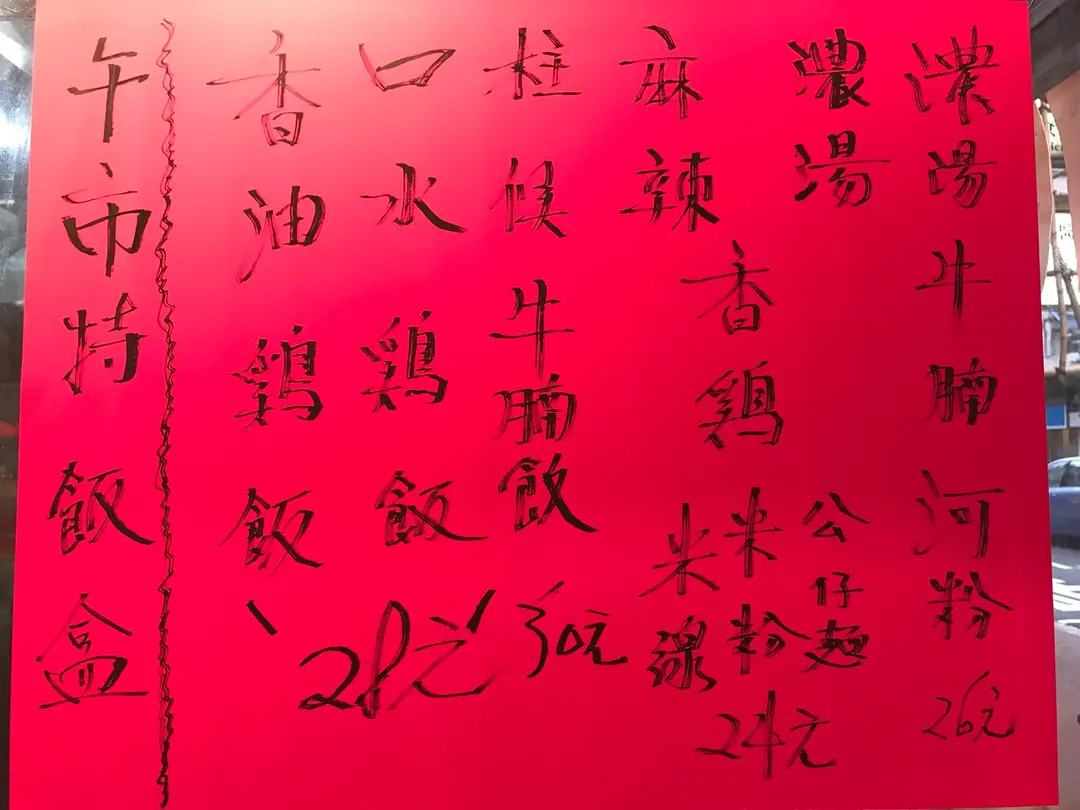 午市特飯盒
香油鷄飯
口水鷄飯
28元
柱候牛腩飯
30元
麻辣
濃湯
香鷄
米線
米粉
公仔麵
24元
濃湯牛腩河粉
26元